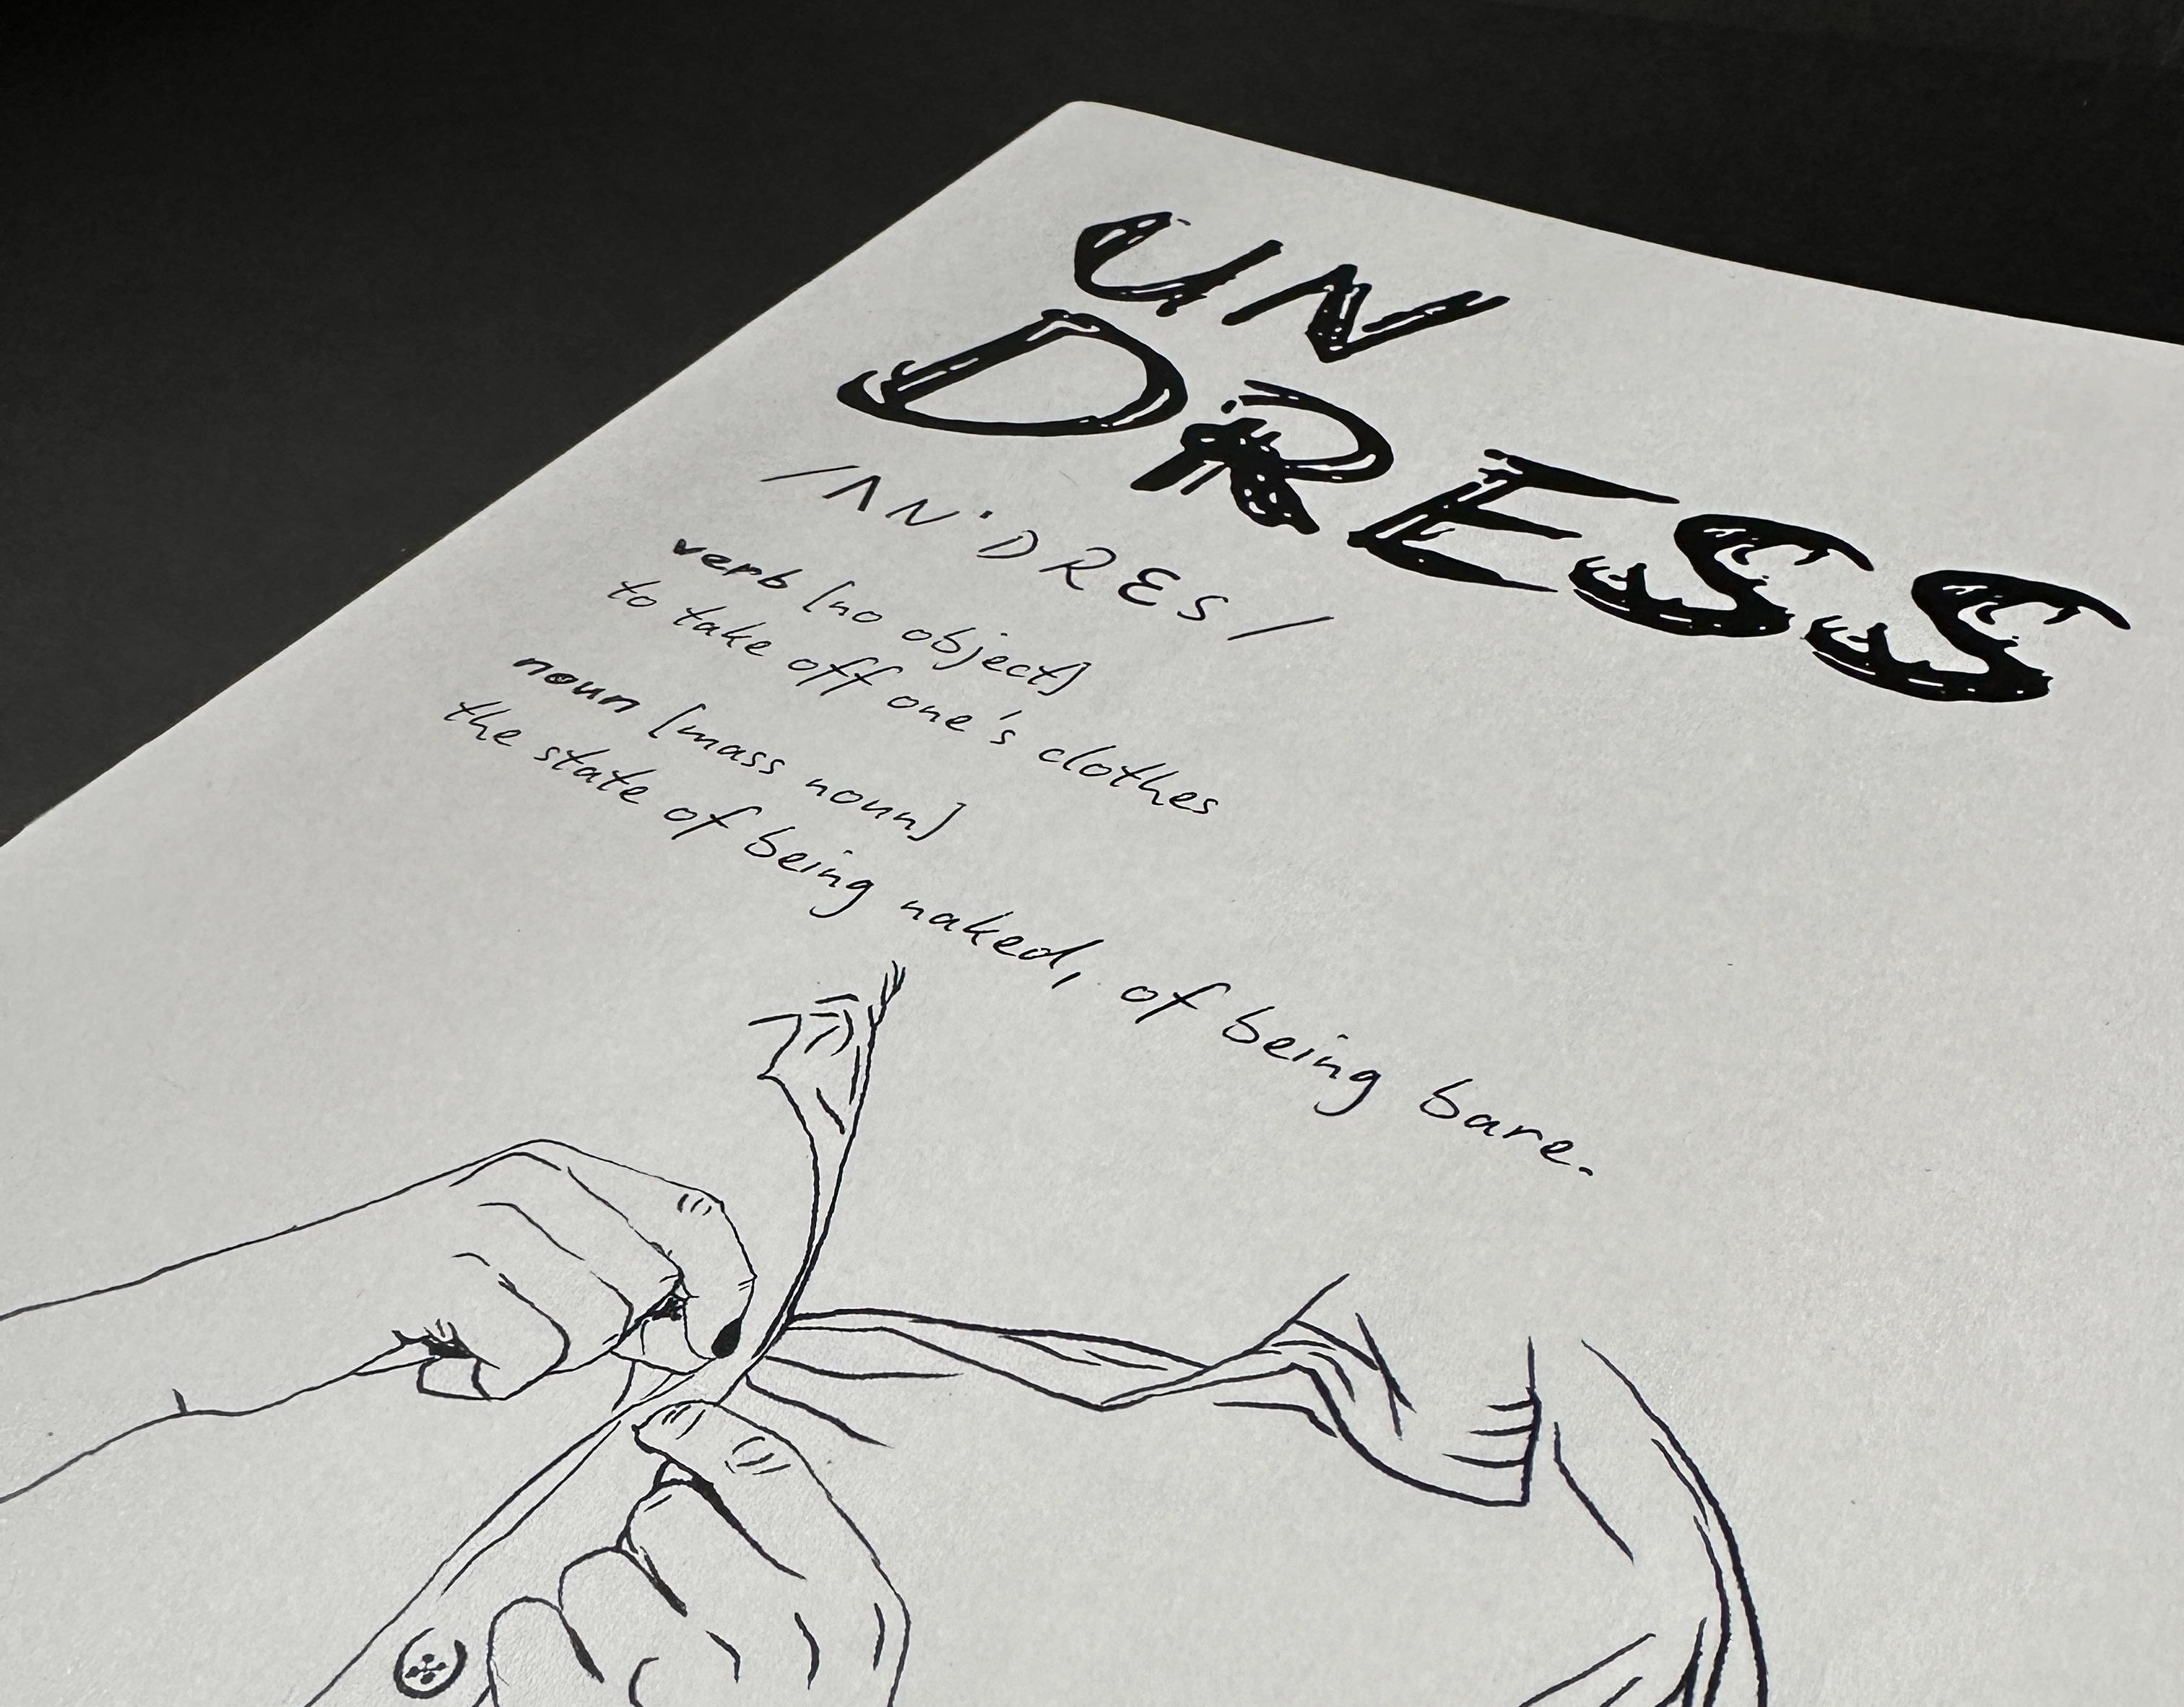 UN
DRESS
/ɅN'DRES/
verb [no object]
to take off one's clothes
noun [mass noun]
the state of being naked, of being bare.